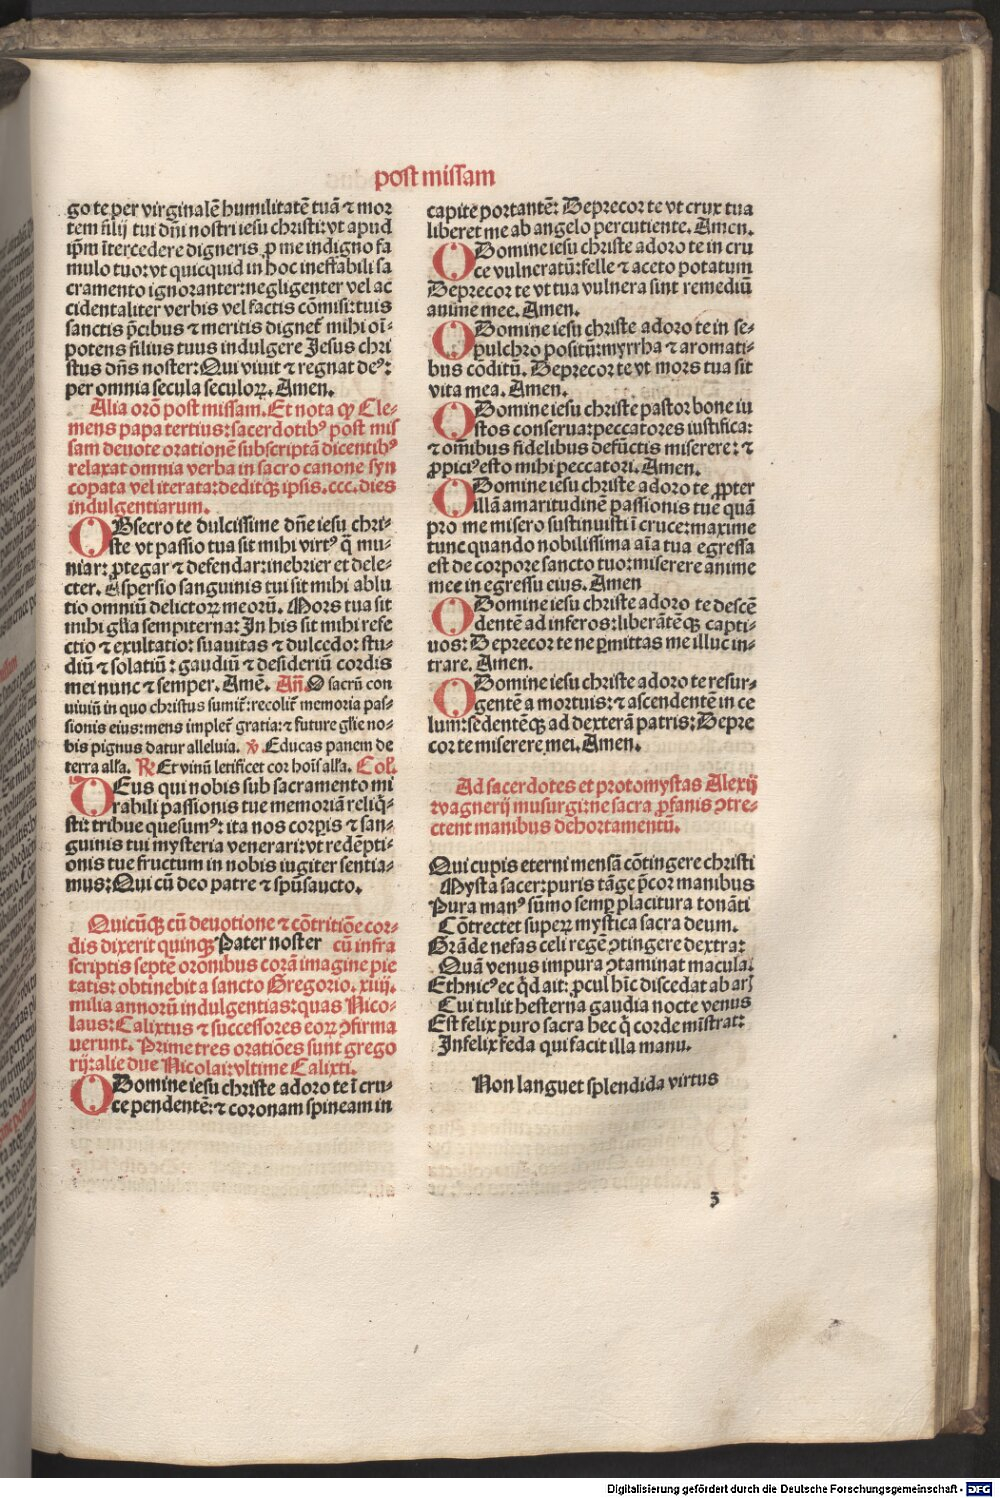 post missam
go te per virginalē humilitatē tuā ⁊ mor
tem filij tui dn̄i nostri iesu christi: vt apud
ip̄m ītercedere digneris ꝓ me indigno fa
mulo tuo: vt quicquid in hoc ineffabili sa
cramento ignoranter: negligenter vel ac
cidentaliter verbis vel factis cōmisi: tuis
sanctis p̄cibus ⁊ meritis dignet᷑ mihi oī-
potens filius tuus indulgere Jesus chri
stus dn̄s noster: Qui viuit ⁊ regnat deꝰ:
per omnia secula seculoꝝ. Amen.
Alia orō post missam. Et nota ꝙ Cle-
mens papa tertius: sacerdotibꝰ post mis
sam deuote orationē subscriptā dicentibꝰ
relaxat omnia verba in sacro canone syn
copata vel iterata: deditqꝫ ipsis. ccc. dies
indulgentiarum.
OBsecro te dulcissime dn̄e iesu chri-
ste vt passio tua sit mihi virtꝰ q̄ mu-
niar: ꝓtegar ⁊ defendar: inebrier et dele-
cter. Aspersio sanguinis tui sit mihi ablu
tio omniū delictoꝝ meoꝝ. Mors tua sit
mihi gl̄ia sempiterna: In his sit mihi refe
ctio ⁊ exultatio: suauitas ⁊ dulcedo: stu-
diū ⁊ solatiū: gaudiū ⁊ desideriū cordis
mei nunc ⁊ semper. Amē. Añ. O sacrū con
uiuiū in quo christus sumit᷑: recolit᷑ memoria pas-
sionis eius: mens implet᷑ gratia: ⁊ future gl̄ie no-
bis pignus datur alleluia. ℣ Educas panem de
terra all̄a. ℞ Et vinū letificet cor hoīs all̄a. Col.
DEus qui nobis sub sacramento mi
rabili passionis tue memoriā reliq̄-
sti: tribue quesumꝰ: ita nos corꝑis ⁊ san-
guinis tui mysteria venerari: vt redēpti-
onis tue fructum in nobis iugiter sentia-
mus: Qui cū deo patre ⁊ spū sancto.
Quicūqꝫ cū deuotione ⁊ cōtritiōe cor-
dis dixerit quinqꝫ Pater noster cū infra
scriptis septē orōnibus corā imagine pie
tatis: obtinebit a sancto Gregorio. xiiij.
milia annorū indulgentias: quas Nico-
laus: Calixtus ⁊ successores eoꝝ ↄfirma
uerunt. Prime tres oratiōes sunt grego
rij: alie due Nicolai: vltime Calixti.
O Domine iesu christe adoro te ī cru-
ce pendentē: ⁊ coronam spineam in
capite portantē: Deprecor te vt crux tua
liberet me ab angelo percutiente. Amen.
O Domine iesu christe adoro te in cru
ce vulneratū: felle ⁊ aceto potatum
Deprecor te vt tua vulnera sint remediū
anime mee. Amen.
O Domine iesu christe adoro te in se-
pulchro positū: myrrha ⁊ aromati-
bus cōditū. Deprecor te vt mors tua sit
vita mea. Amen.
O Domine iesu christe pastor bone iu
stos conserua: peccatores iustifica:
⁊ om̄ibus fidelibus defūctis miserere: ⁊
ꝓpiciꝰ esto mihi peccatori. Amen.
O Domine iesu christe adoro te ꝓpter
illā amaritudinē passionis tue quā
pro me misero sustinuisti ī cruce: maxime
tunc quando nobilissima aīa tua egressa
est de corpore sancto tuo: miserere anime
mee in egressu eius. Amen
O Domine iesu christe adoro te descē
dentē ad inferos: liberātēqꝫ capti-
uos: Deprecor te ne ꝑmittas me illuc in-
trare. Amen.
O Domine iesu christe adoro te resur-
gentē a mortuis: ⁊ ascendentē in ce
lum: sedentēqꝫ ad dexterā patris: Depre
cor te miserere mei. Amen.
Ad sacerdotes et protomystas Alexij
wagnerij musurgi: ne sacra ꝓfanis ↄtre-
ctent manibus dehortamentū.
Qui cupis eterni mensā cōtingere christi
Mysta sacer: puris tāge p̄cor manibus
Pura manꝰ sūmo semꝑ placitura tonāti
Cōtrectet superꝝ mystica sacra deum.
Grāde nefas celi regē ↄtingere dextra:
Quā venus impura ↄtaminat macula:
Ethnicꝰ ec q̄d ait: ꝓcul hīc discedat ab arꝭ
Cui tulit hesterna gaudia nocte venus
Est felix puro sacra hec q̄ corde mīstrat:
Infelix feda qui facit illa manu.
Non languet splendida virtus
3
Digitalisierung gefördert durch die Deutsche Forschungsgemeinschaft - DFG